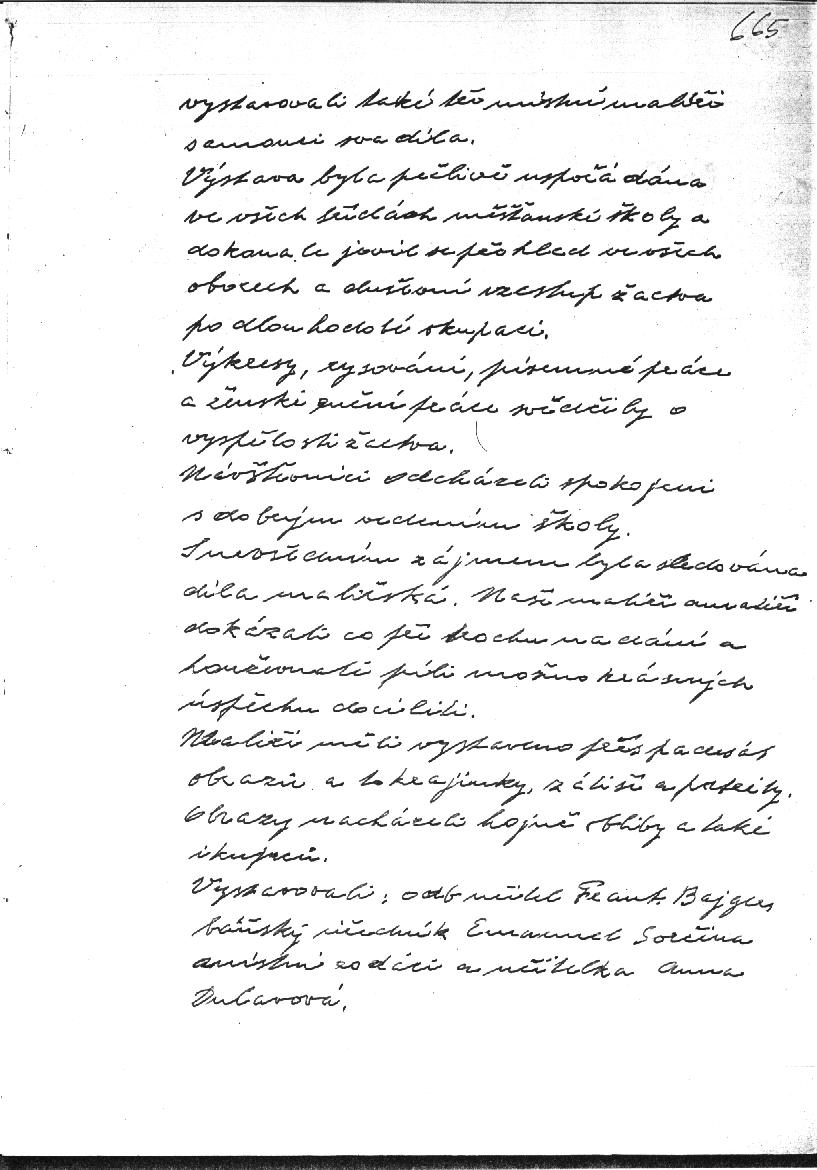 665
vystavovali také tři místní malíři
samouci svá díla.
Výstava byla pečlivě uspořádána
ve všech třídách měšťanské školy a
dokonale jevil se přehled ve všech
oborech a duševní vzestup žactva
po dlouhodobé okupaci.
Výkresy, rysování, písemné práce
a ženské ruční práce svědčily o
vyspělosti žactva.
Návštěvníci odcházeli spokojeni
s dobrým vedením školy.
S nevšedním zájmem byla sledována
díla malířská. Naši malíři amatéři
dokázali co při trochu nadání a
houževnaté píli možno krásných
úspěchu docíliti.
Malíři měli vystaveno přes padesát
obrazů a to krajinky, zátiší a portréty.
Obrazy nacházeli hojně obliby a také
i kupců.
Vystavovali: odb učitel Frant. Bajger,
báňský úředník Emanuel
a místní rodáci a učitelka Anna